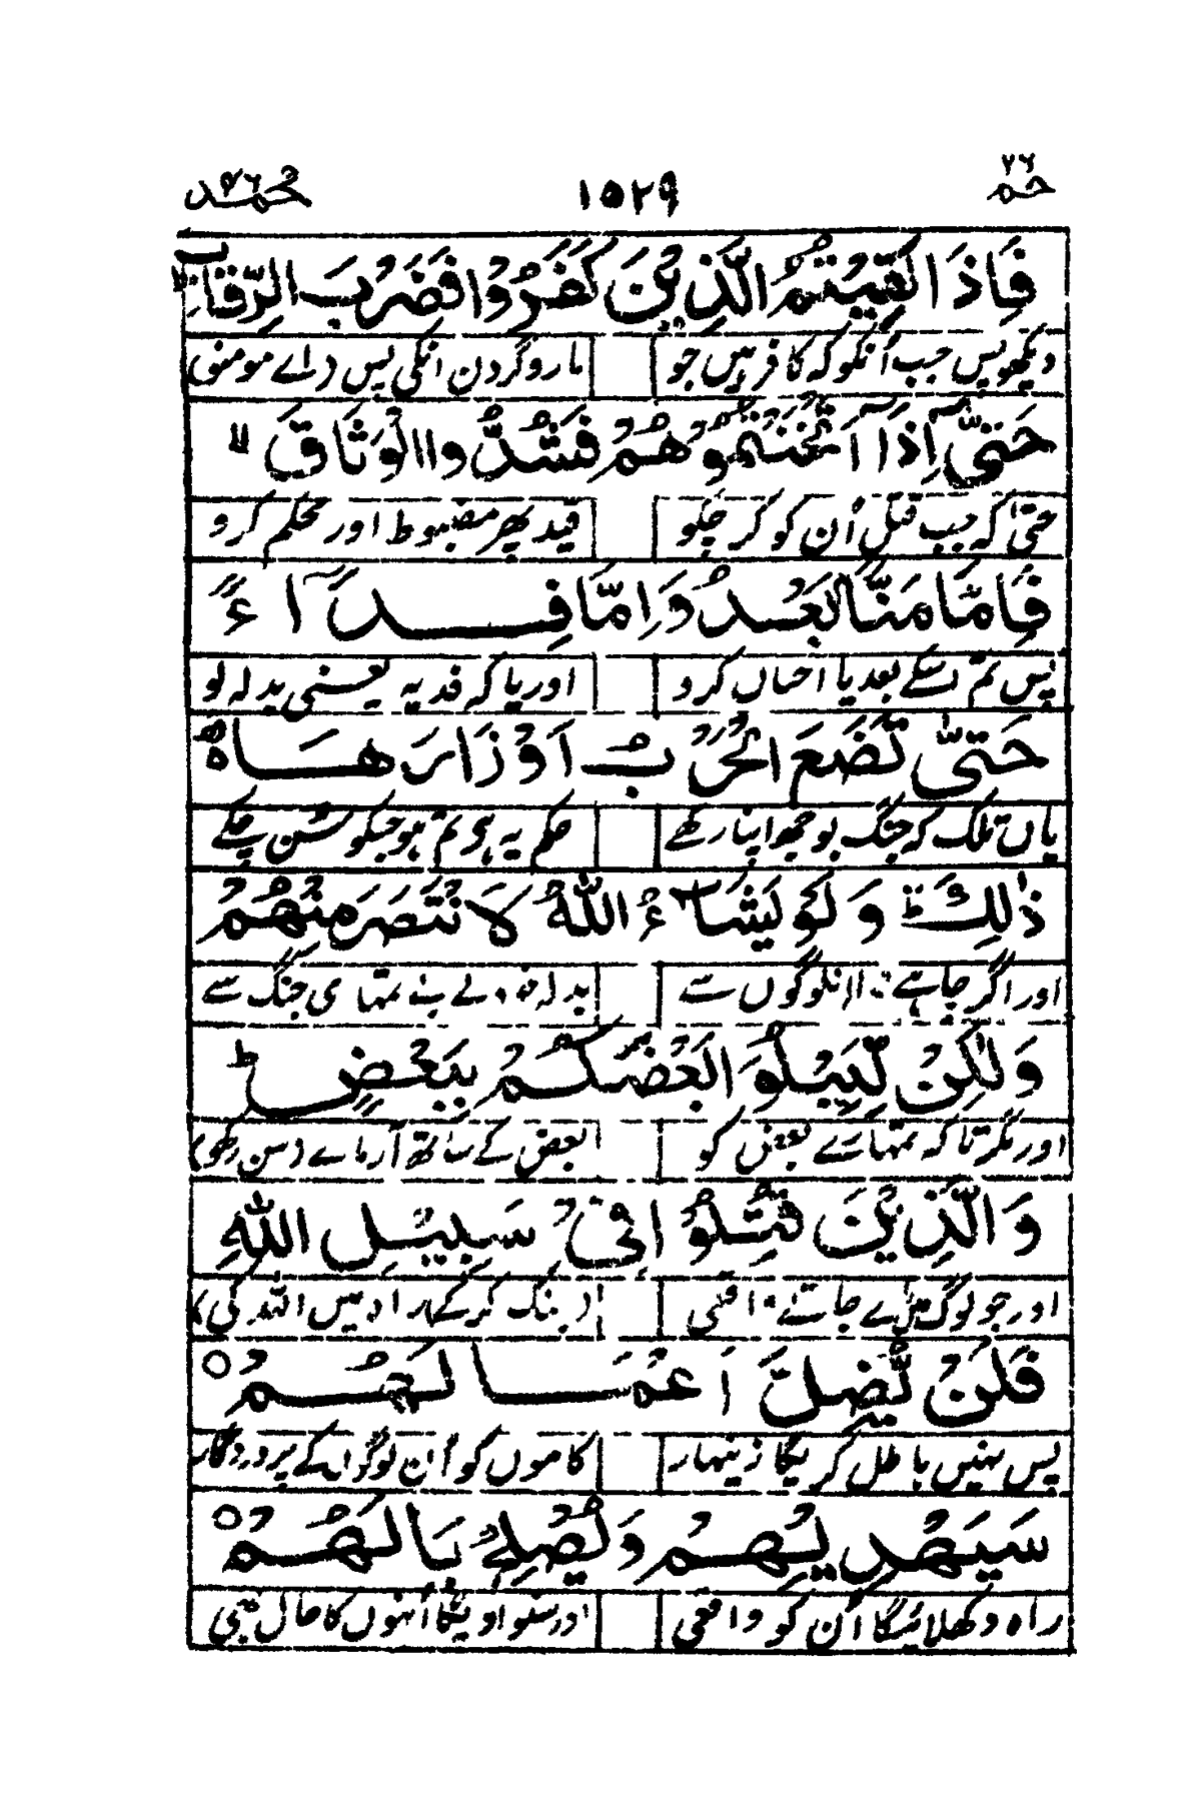 حٰم ٢٦ ١٥٢٩ محمد ٤٧
فَاِذَا لَقِيْتُمُ الَّذِيْنَ كَفَرُوْا فَضَرْبَ الرِّقَابِ
دیکھو پس جب اُنکو کہ کافر ہیں جو مارو گردن انکی پس (اے مومنو
حَتّٰىٓ اِذَآ اَثْخَنْتُمُوْهُمْ فَشُدُّوا الْوَثَاقَ
حتیٰ کہ جب قتل اُن کو کر چکو قید پھر مضبوط اور محکم کرو
فَاِمَّا مَنًّا بَعْدُ وَاِمَّا فِدَآءً
پس تم اسکے بعد یا احساں کرو اور یا کہ فدیہ یعنی بدلہ لو
حَتّٰى تَضَعَ الْحَرْبُ اَوْزَارَهَا
یاں تلک کہ جنگ بوجھ اپنا رکھے حکم یہ ہی تم ہو جسکو سُن چکے
ذٰلِكَ ؕ وَلَوْ يَشَآءُ اللّٰهُ لَانْتَصَرَ مِنْهُمْ
اور اگر چاہے انلوگوں سے بدلہ لے بے تمہاری جنگ سے
وَلٰكِنْ لِّيَبْلُوَا۟ بَعْضَكُمْ بِبَعْضٍ ؕ
اور مگر تا کہ تمہارے بعض کو بعض کے ساتھ آزماے (سن رکھو)
وَالَّذِيْنَ قُتِلُوْا فِيْ سَبِيْلِ اللّٰهِ
اور جو لوگ جاتے واقعی جنگ کر کے راہ میں اللہ کی
فَلَنْ يُّضِلَّ اَعْمَالَهُمْ ○
پس نہیں باطل کریگا زینہار کاموں کو اُن لوگوں کے پروردگار
سَيَهْدِيْهِمْ وَيُصْلِحُ بَالَهُمْ ○
راہ دکھلائیگا اُن کو واقعی اور سنوارویگا اُنہوں کا حال بھی